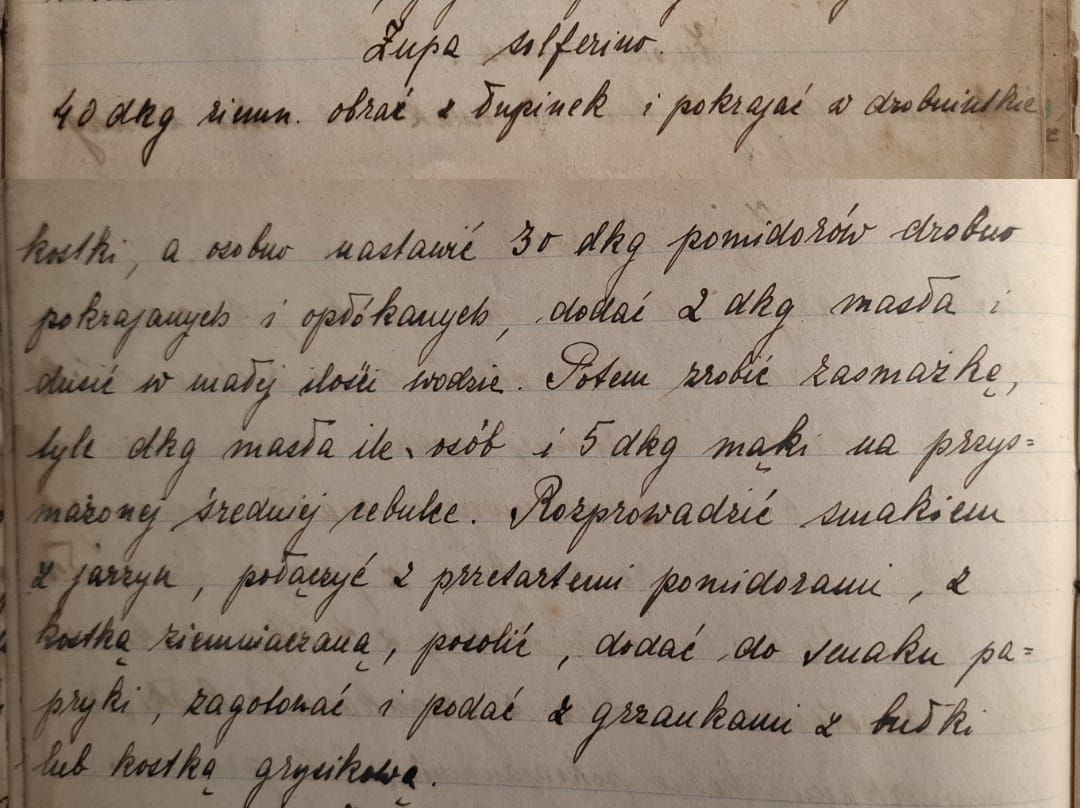 Zupa solferino.
40 dkg ziemn. obrać z łupinek i pokrajać w drobniutkie
kostki, a osobno nastawić 30 dkg pomidorów drobno
pokrajanych i opłókanych, dodać 2 dkg masła i
dusić w małej ilości wodzie. Potem zrobić zasmażkę,
tyle dkg masła ile osób i 5 dkg mąki na przys=
mażonej średniej cebulce. Rozprowadzić smakiem
z jarzyn, połączyć z przetartemi pomidorami, z
kostką ziemniaczaną, posolić, dodać do smaku pa=
pryki, zagotować i podać z grzankami z bułki
lub kostką grysikową.